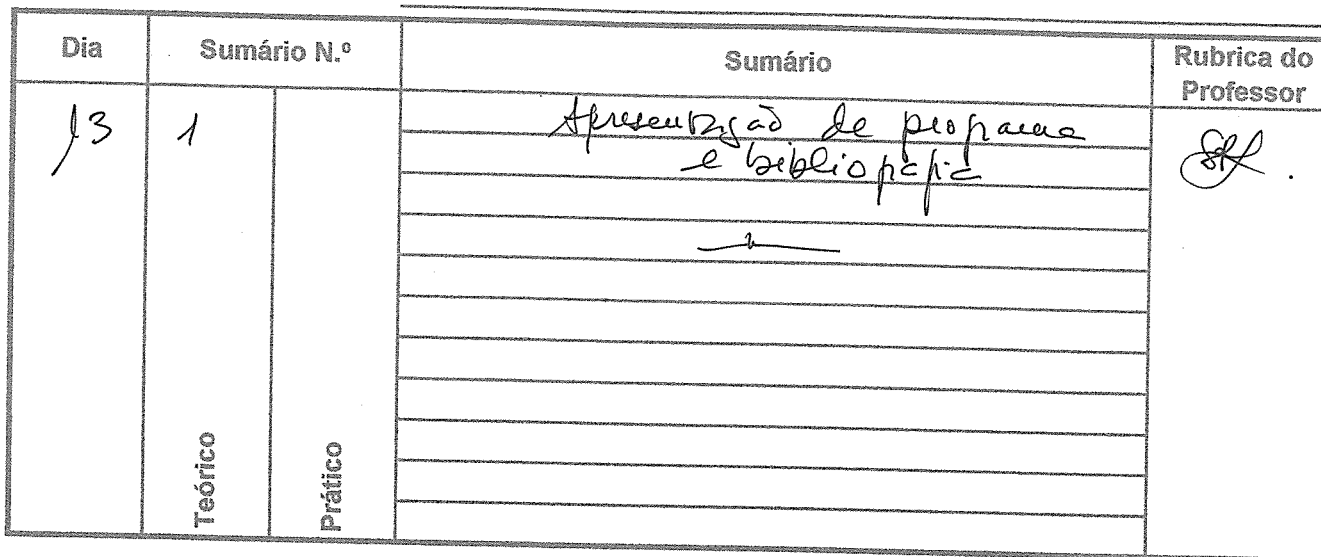 Dia Sumário N.º Sumário Rubrica do Professor
13 1 Apresentação de programa
e bibliografia
Teórico Prático